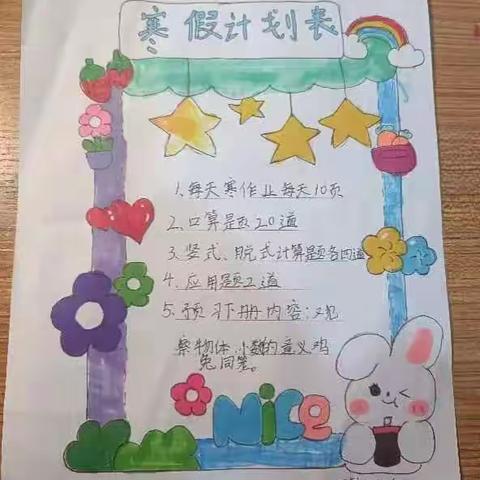 寒假计划表
1. 每天寒作业每天10页
2. 口算是题20道
3. 竖式、脱式计算题各四道
4. 应用题2道
5. 预习下册内容:观
察物体 小数的意义鸡
兔同笼。
Nice